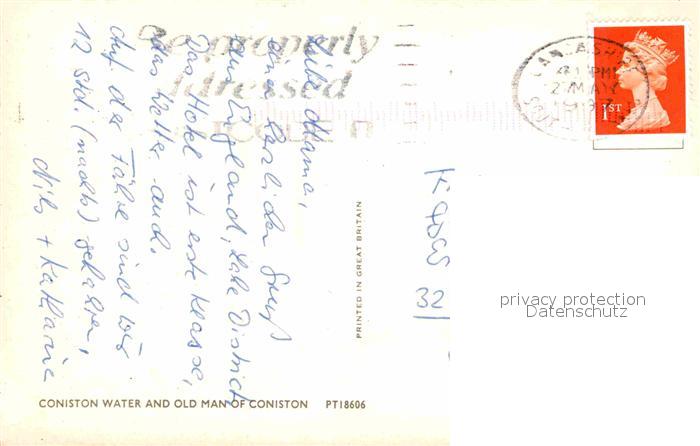 Liebe Mama,
einen herzlichen Gruß
aus England, Lake District
Das Hotel ist erste Klasse,
das Wetter auch.
Auf der Fähre sind wir
12 Std. (nachts) gefahren,
Nils + Katharina
properly
addressed
POSTCODE
LANCASHIRE
PM
MAY
1ST
PRINTED IN GREAT BRITAIN
32/
privacy protection
Datenschutz
CONISTON WATER AND OLD MAN OF CONISTON PT18606